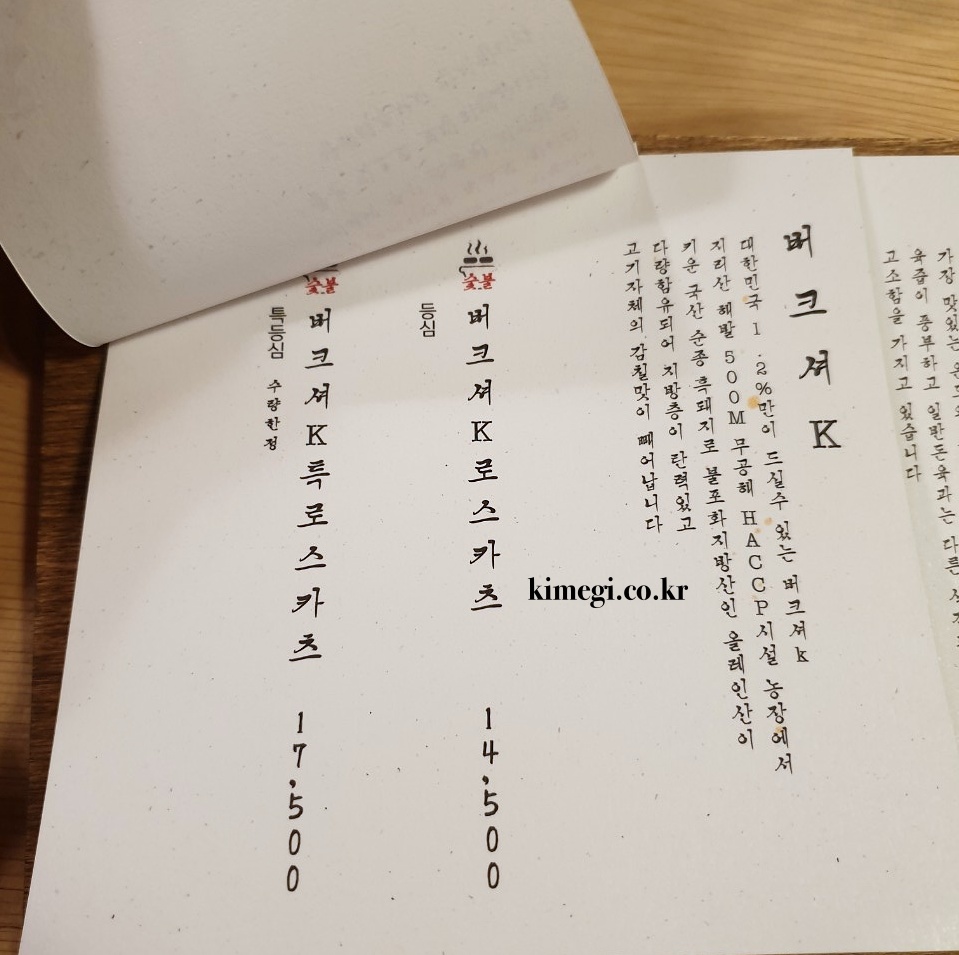 가장 맛있는
육즙이 풍부하고 일반돈육과는 다른
고소함을 가지고 있습니다
버크셔K
대한민국 1.2%만이 드실수 있는 버크셔k
지리산 해발 500M 무공해 HACCP시설 농장에서
키운 국산 순종 흑돼지로 불포화지방산인 올레인산이
다량함유되어 지방층이 탄력있고
고기자체의 감칠맛이 빼어납니다
숯불
버크셔K로스카츠 14,500
등심
숯불
버크셔K특로스카츠 17,500
특등심 수량한정
kimegi.co.kr